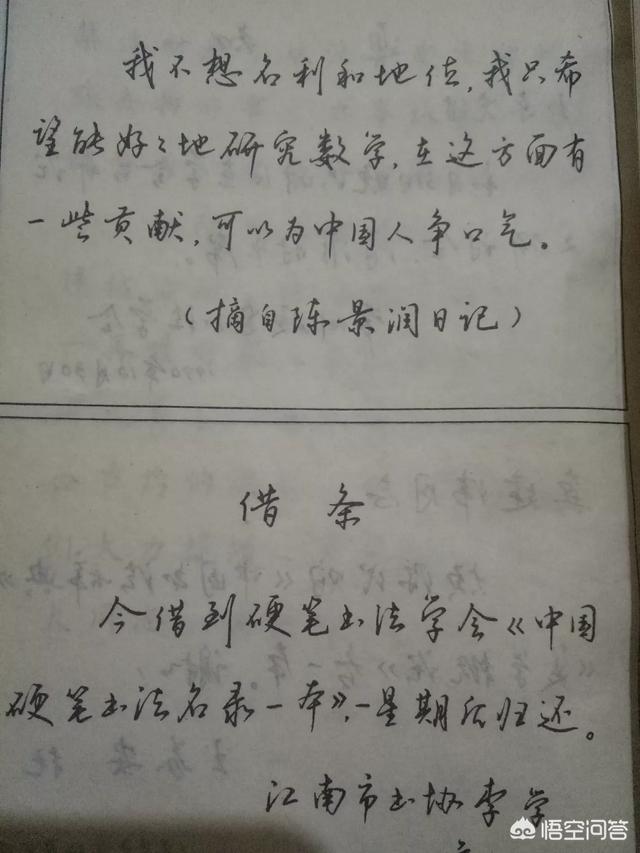 我不想名利和地位，我只希
望能好々地研究数学，在这方面有
一些贡献，可以为中国人争口气。
（摘自陈景润日记）
借条
今借到硬笔书法学会《中国
硬笔书法名录一本》，一星期后归还。
江南市书协李学
悟空问答